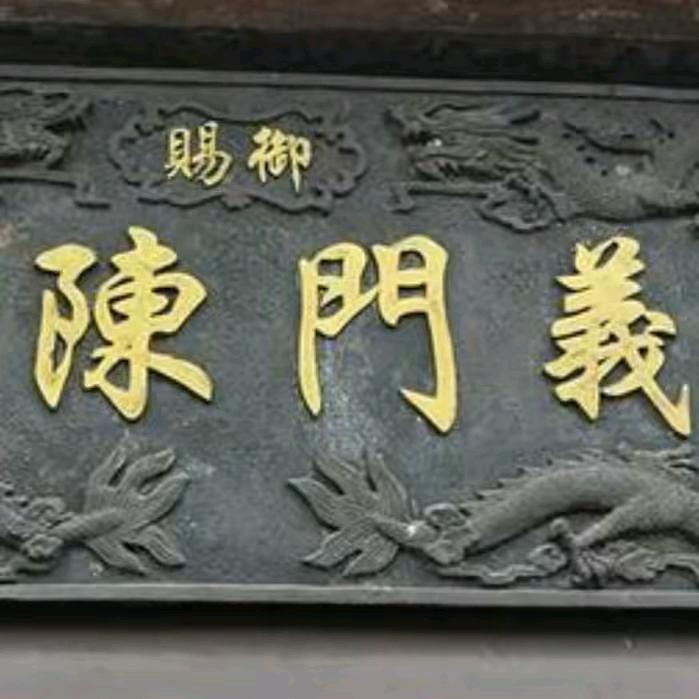 御賜
義門陳